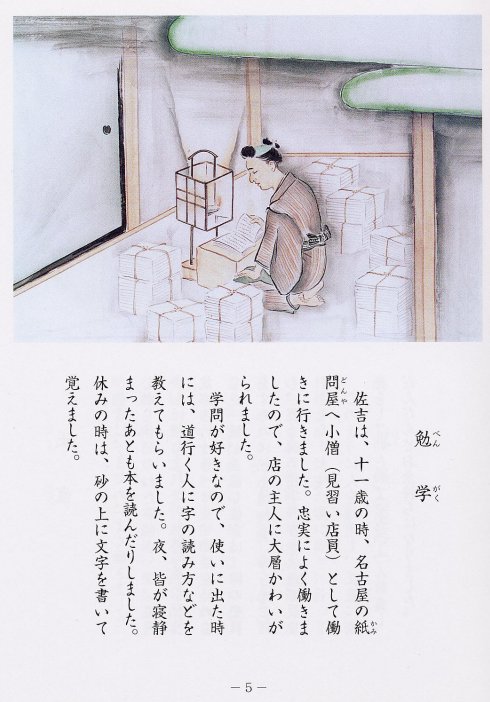 勉学
べんがく
佐吉は、十一歳の時、名古屋の紙
かみ
問屋へ小僧（見習い店員）として働
どんや
きに行きました。忠実によく働きま
したので、店の主人に大層かわいが
られました。
学問が好きなので、使いに出た時
には、道行く人に字の読み方などを
教えてもらいました。夜、皆が寝静
まったあとも本を読んだりしました。
休みの時は、砂の上に文字を書いて
覚えました。
— 5 —